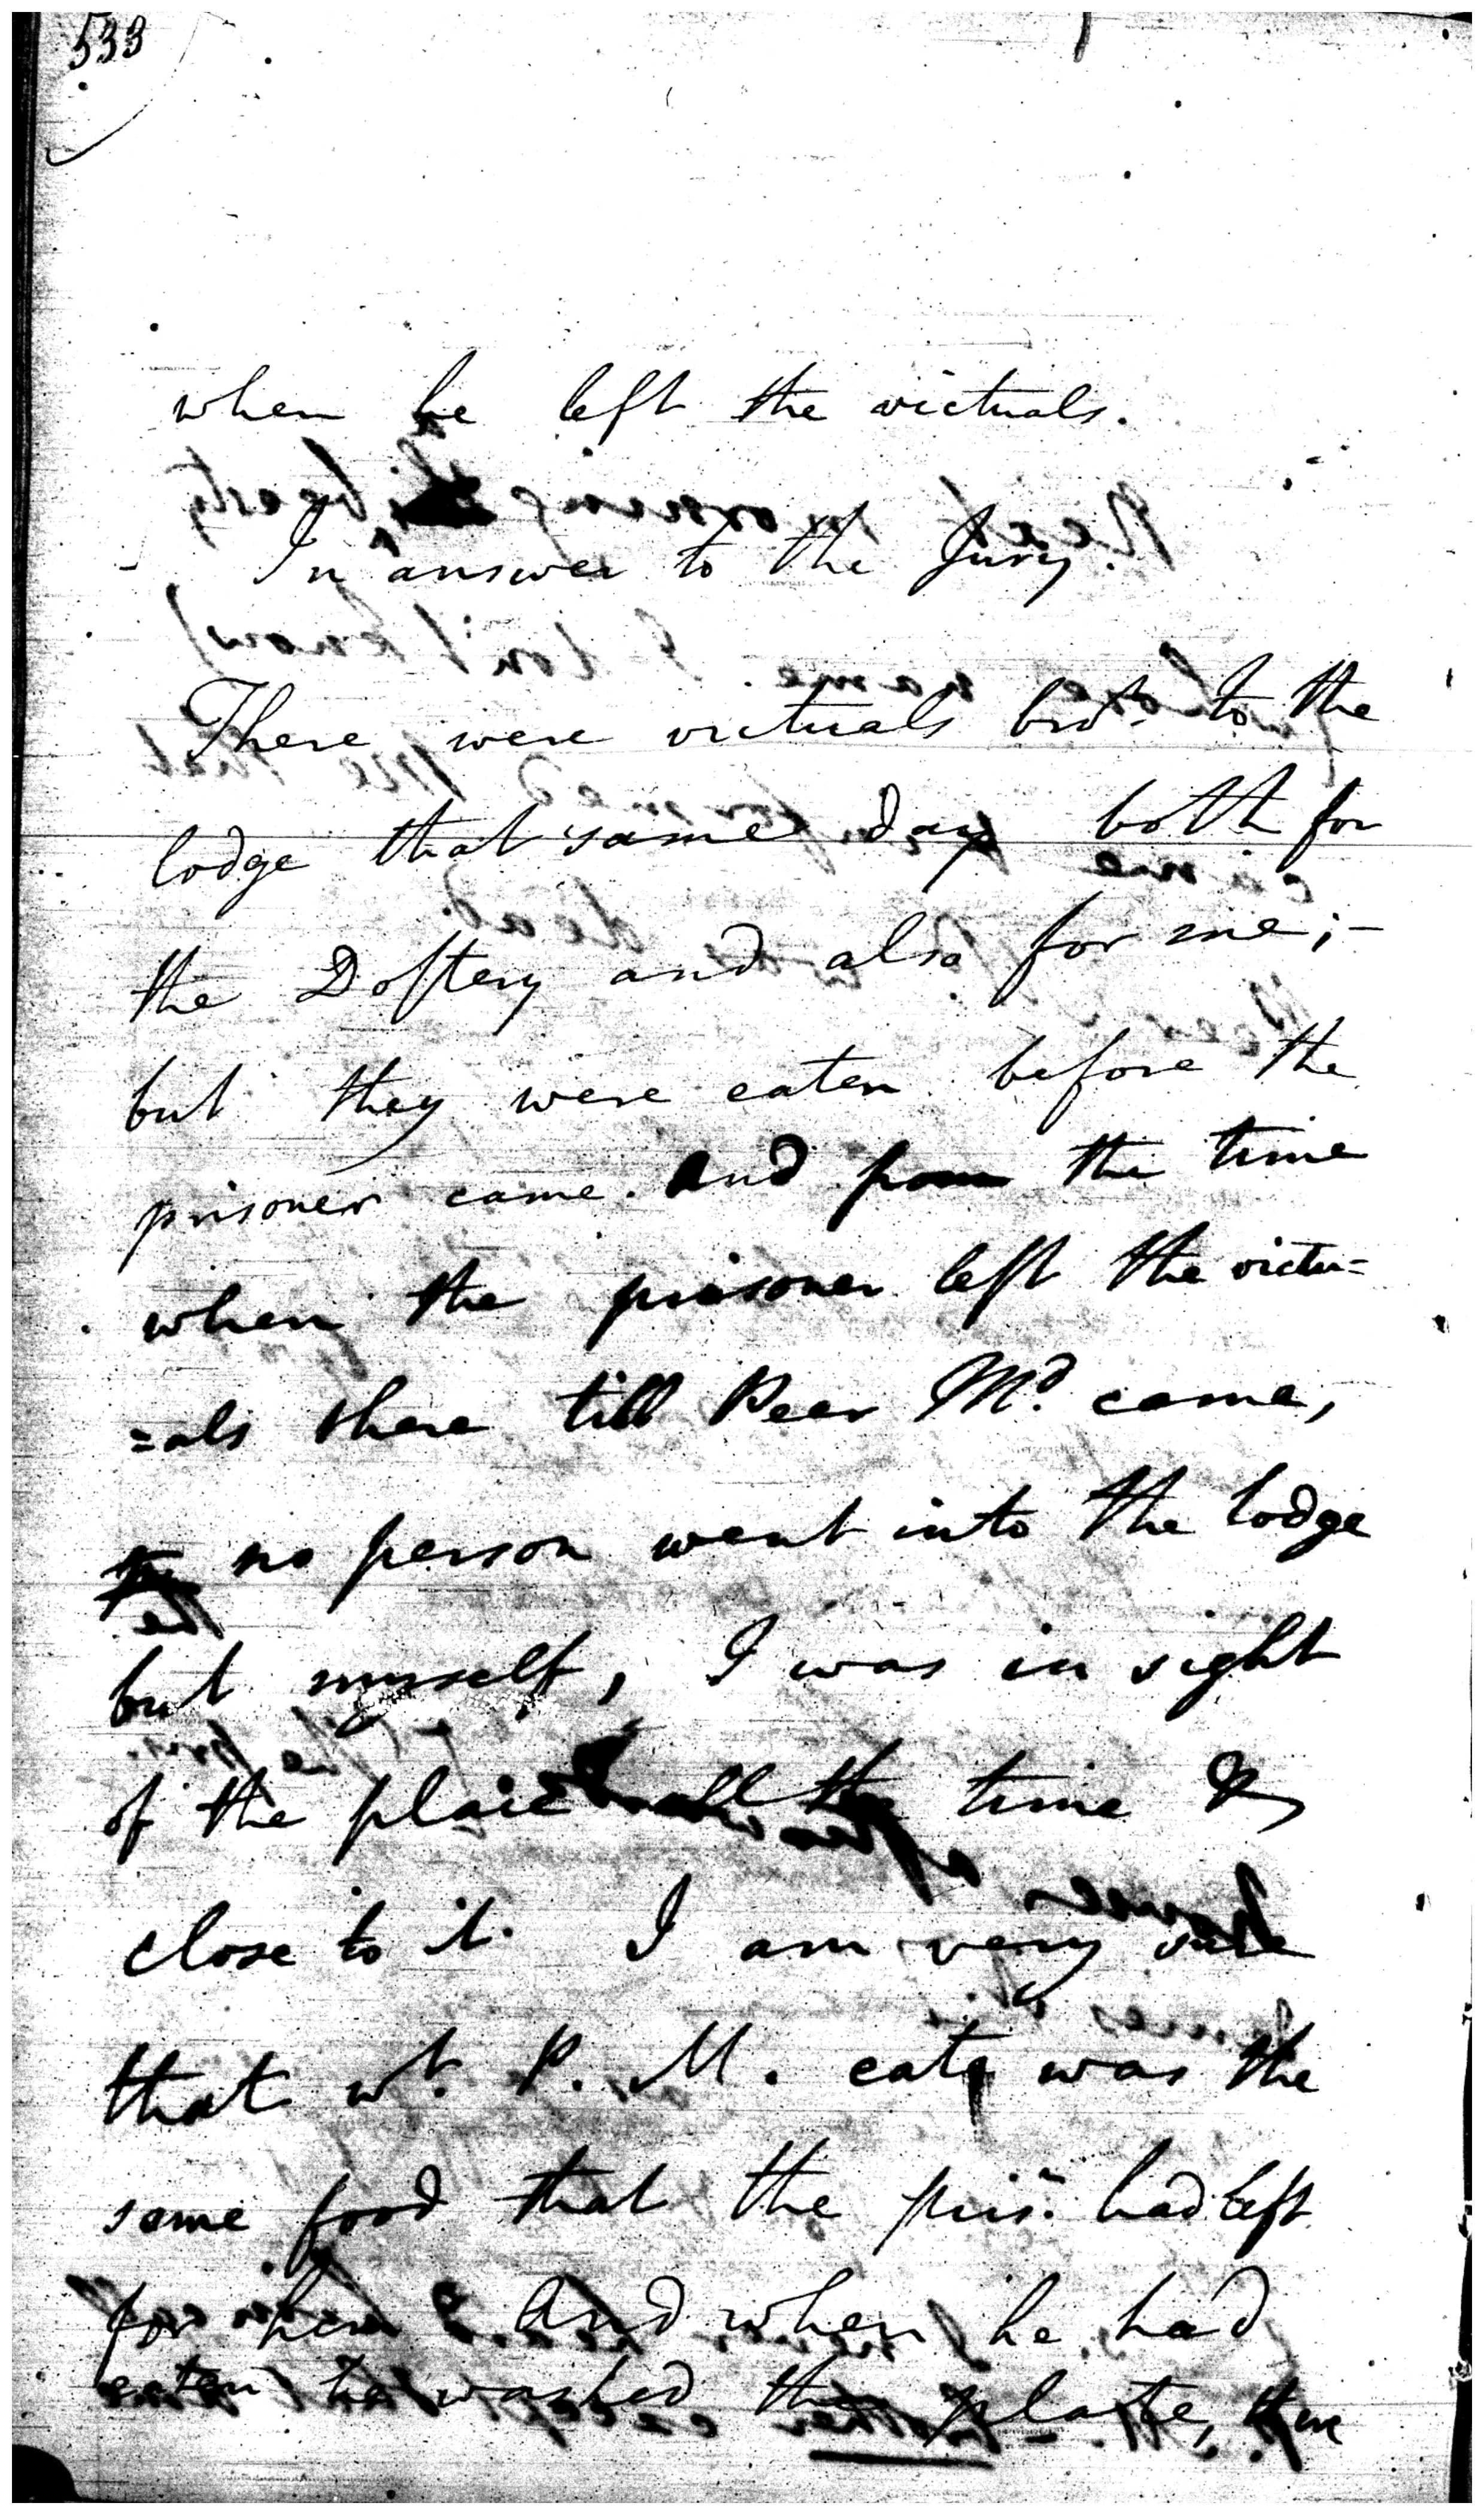 533
when he left the victuals.
In answer to the Jury.
There were victuals bro.t to the
lodge that same day both for
the Doftery and also for me; -
but they were eaten before the
prisoner came. And from the time
when the prisoner left the victu=
=als there till Peer M.d came,
no person went into the lodge
but myself, I was in sight
of the place all the time &
close to it. I am very sure
that w.t P. M. eat was the
same food that the pris.r had left
for him And when he had
eaten he washed the plate,